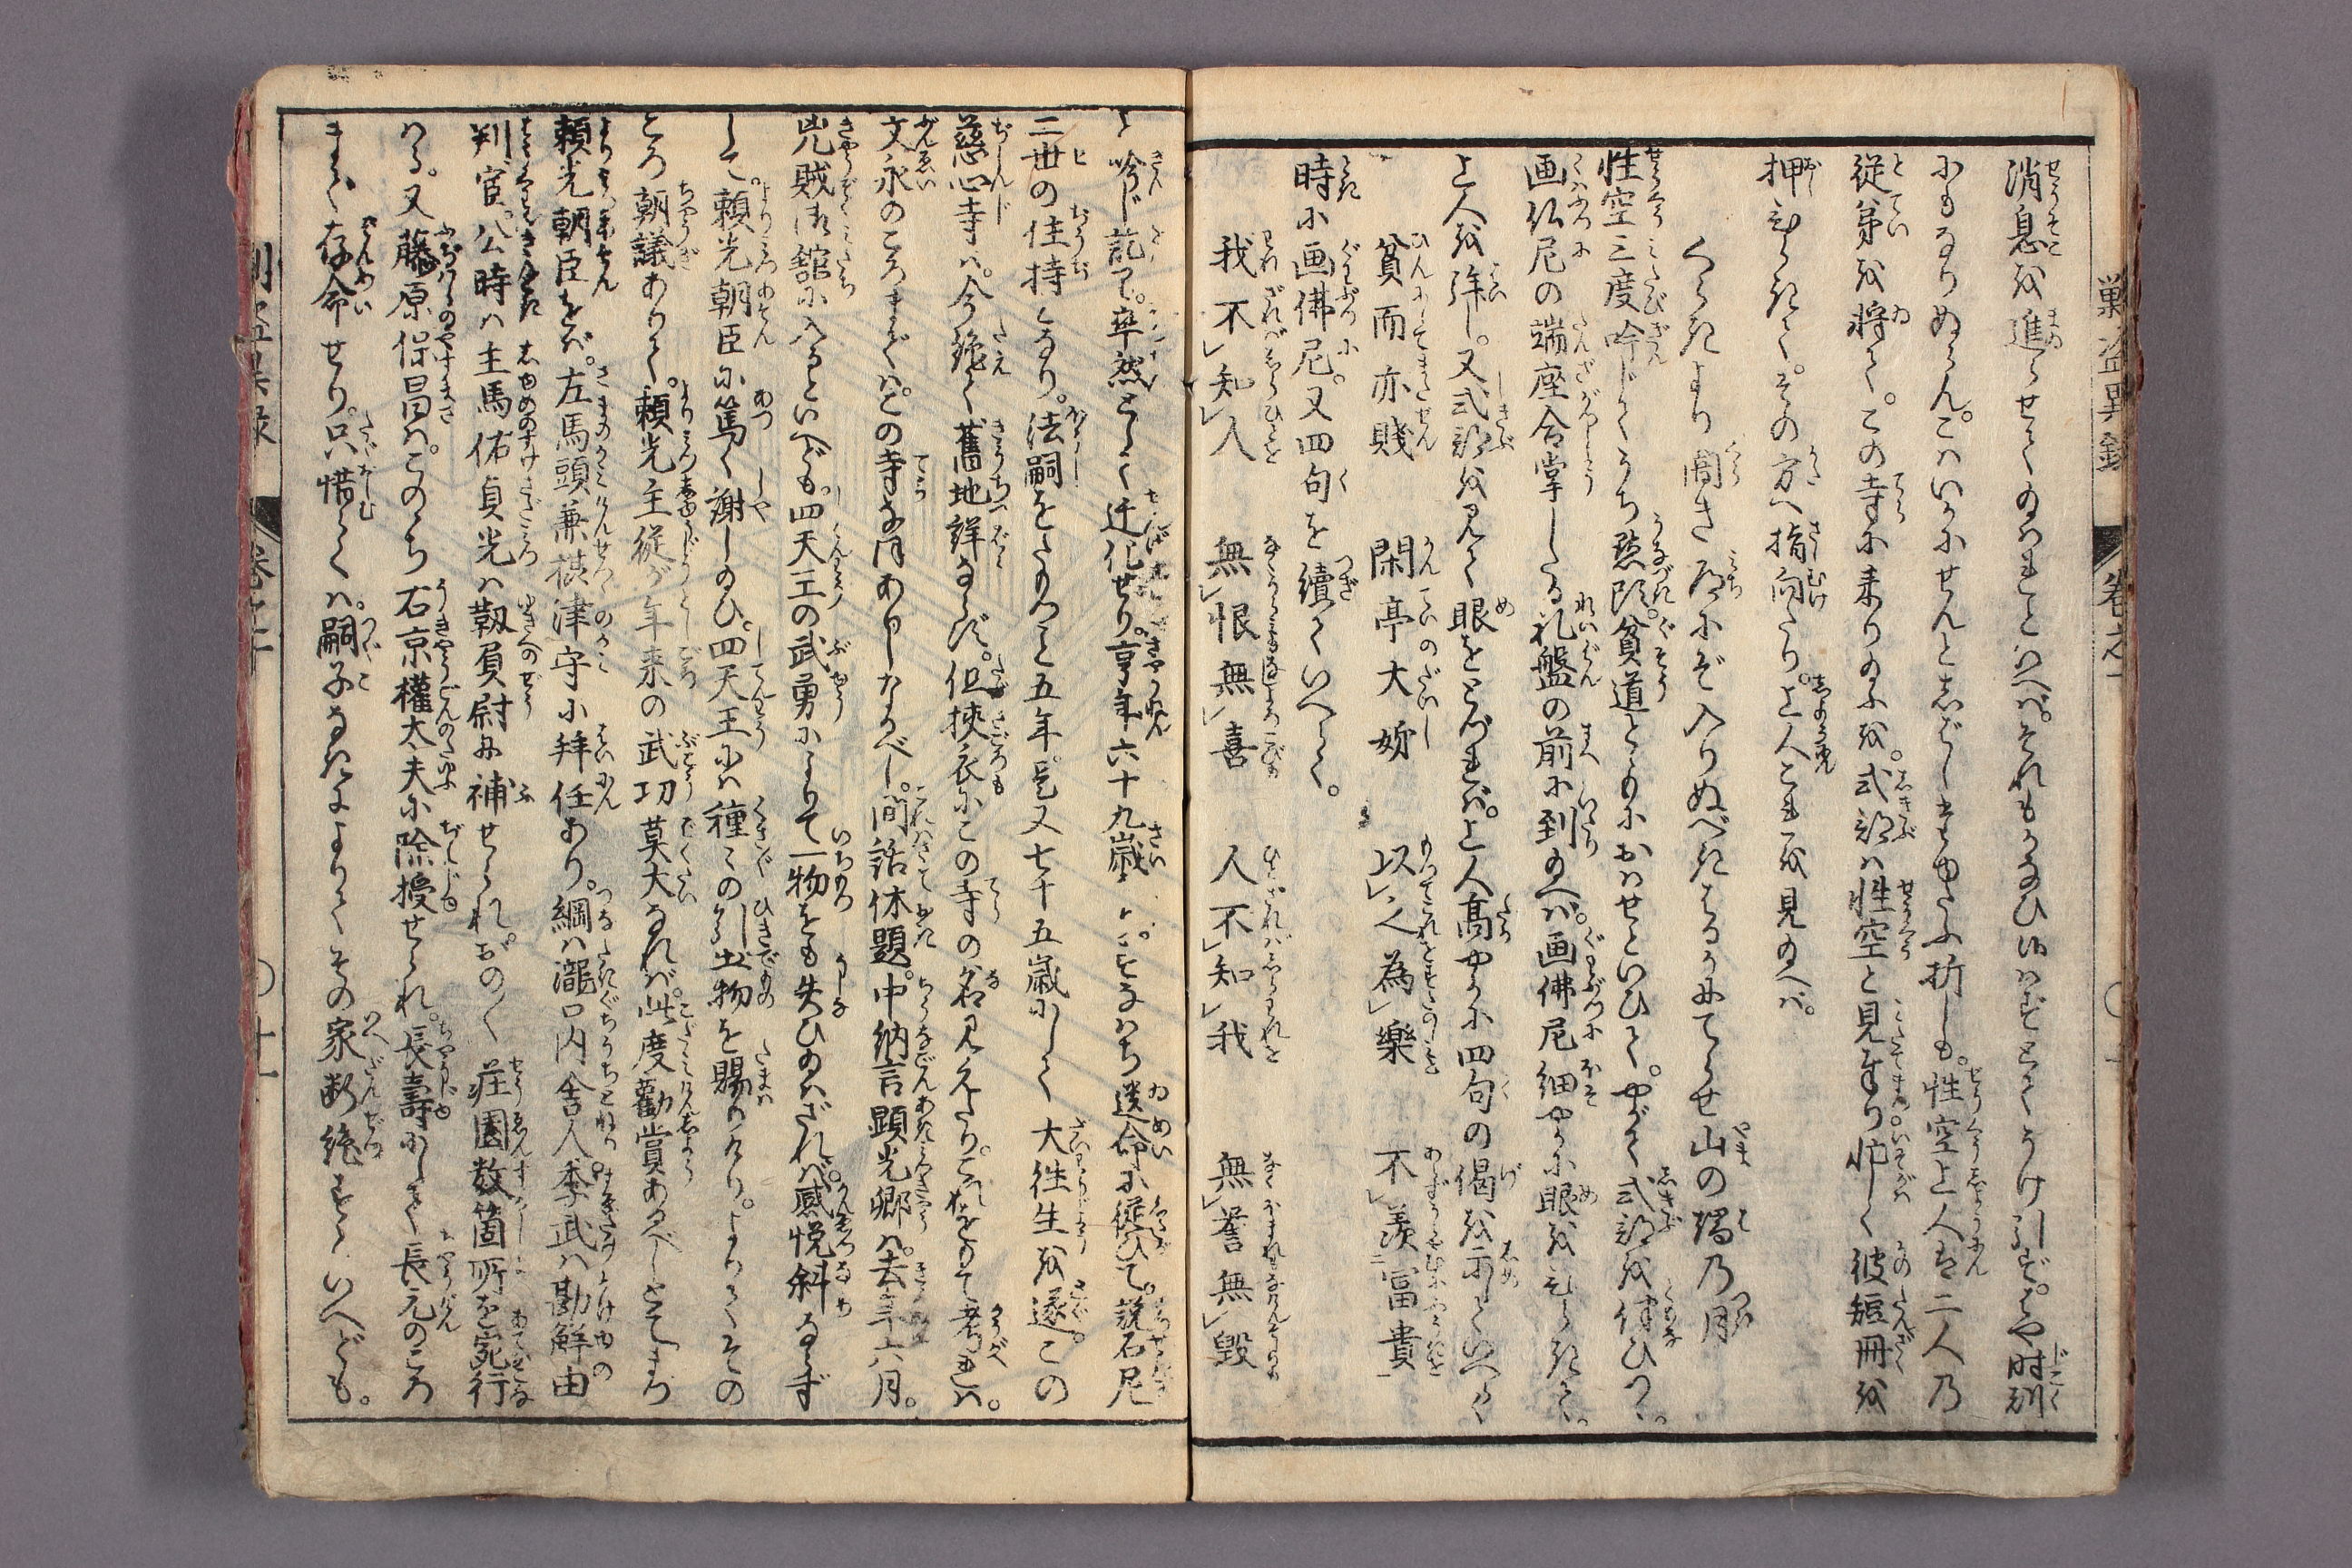 消息を進らせ給はれといへば。それもかなひ候はずとてうけ引ず。はや時刻
にもなりぬらん。こはいかにせんとあぐみはて給ふ折しも。性空上人は二人の
従弟を将て。この寺に来り給ふを。式部は性空と見奉り忙しく彼短冊を
押ひらきて。その方へ指向たり。上人これを見給へば。
くらきより闇き道にぞ入りぬべきはるかにてらせ山の端の月
性空三度吟じてうち点頭。貧道とゝもにおはせといひて。やがて式部を伴ひつゝ。
画仏尼の端座合掌したる礼盤の前に到り給へば。画佛尼細やかに眼をひらきて。
上人を拜し。又式部を見て眼をとぢければ。上人高やかに四句の偈を示していへらく
貧而亦賤　閑亭大妙　以之為樂　不羨富貴
時に画佛尼。又四句を續ていへらく。
我不知人　無恨無喜　人不知我　無誉無毀
と吟じ訖て。卒然として迁化せり。享年六十九歳とぞ。すなはち遺命に従ひて。説石尼
二世の住持となり。法嗣をたもつこと五年。是又七十五歳にして大往生を遂ぐ。この
慈心寺は。今絶て舊地詳ならず。但狹衣にこの寺の名見えたり。これをもて考れば。
文永のころまでは。この寺なほありしなるべし。間話休題。中納言顕光卿は。去年六月。
兇賊御館に入るといへども。四天王の武勇によりて一物をも失ひ給はざれば。感悦斜ならず
して。頼光朝臣に篤く謝し給ひ。四天王には種々の引出物を賜りけり。かくてその
ころ朝議ありて。頼光主従が年来の武功莫大なれば。此度勸賞あるべしとてまづ
頼光朝臣をば。左馬頭兼摂津守に拜任あり。綱は瀧口内舎人。季武は勘解由
判官。公時は主馬佑貞光は靱負尉に補せられ。おの〳〵荘園数箇所を宛行
はる。又藤原保昌は。このゝち右京權大夫に除授せられ。長壽にして長元のころ
まで存命せり。只惜らくは。嗣子なきによりてその家断絶すといへども。
巣盗異録　巻之